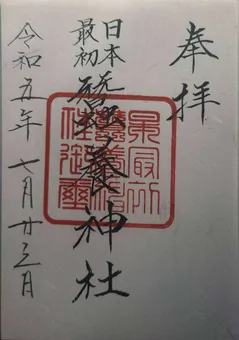 奉拝
日本
最初
蠶養神社
令和五年七月廿三日